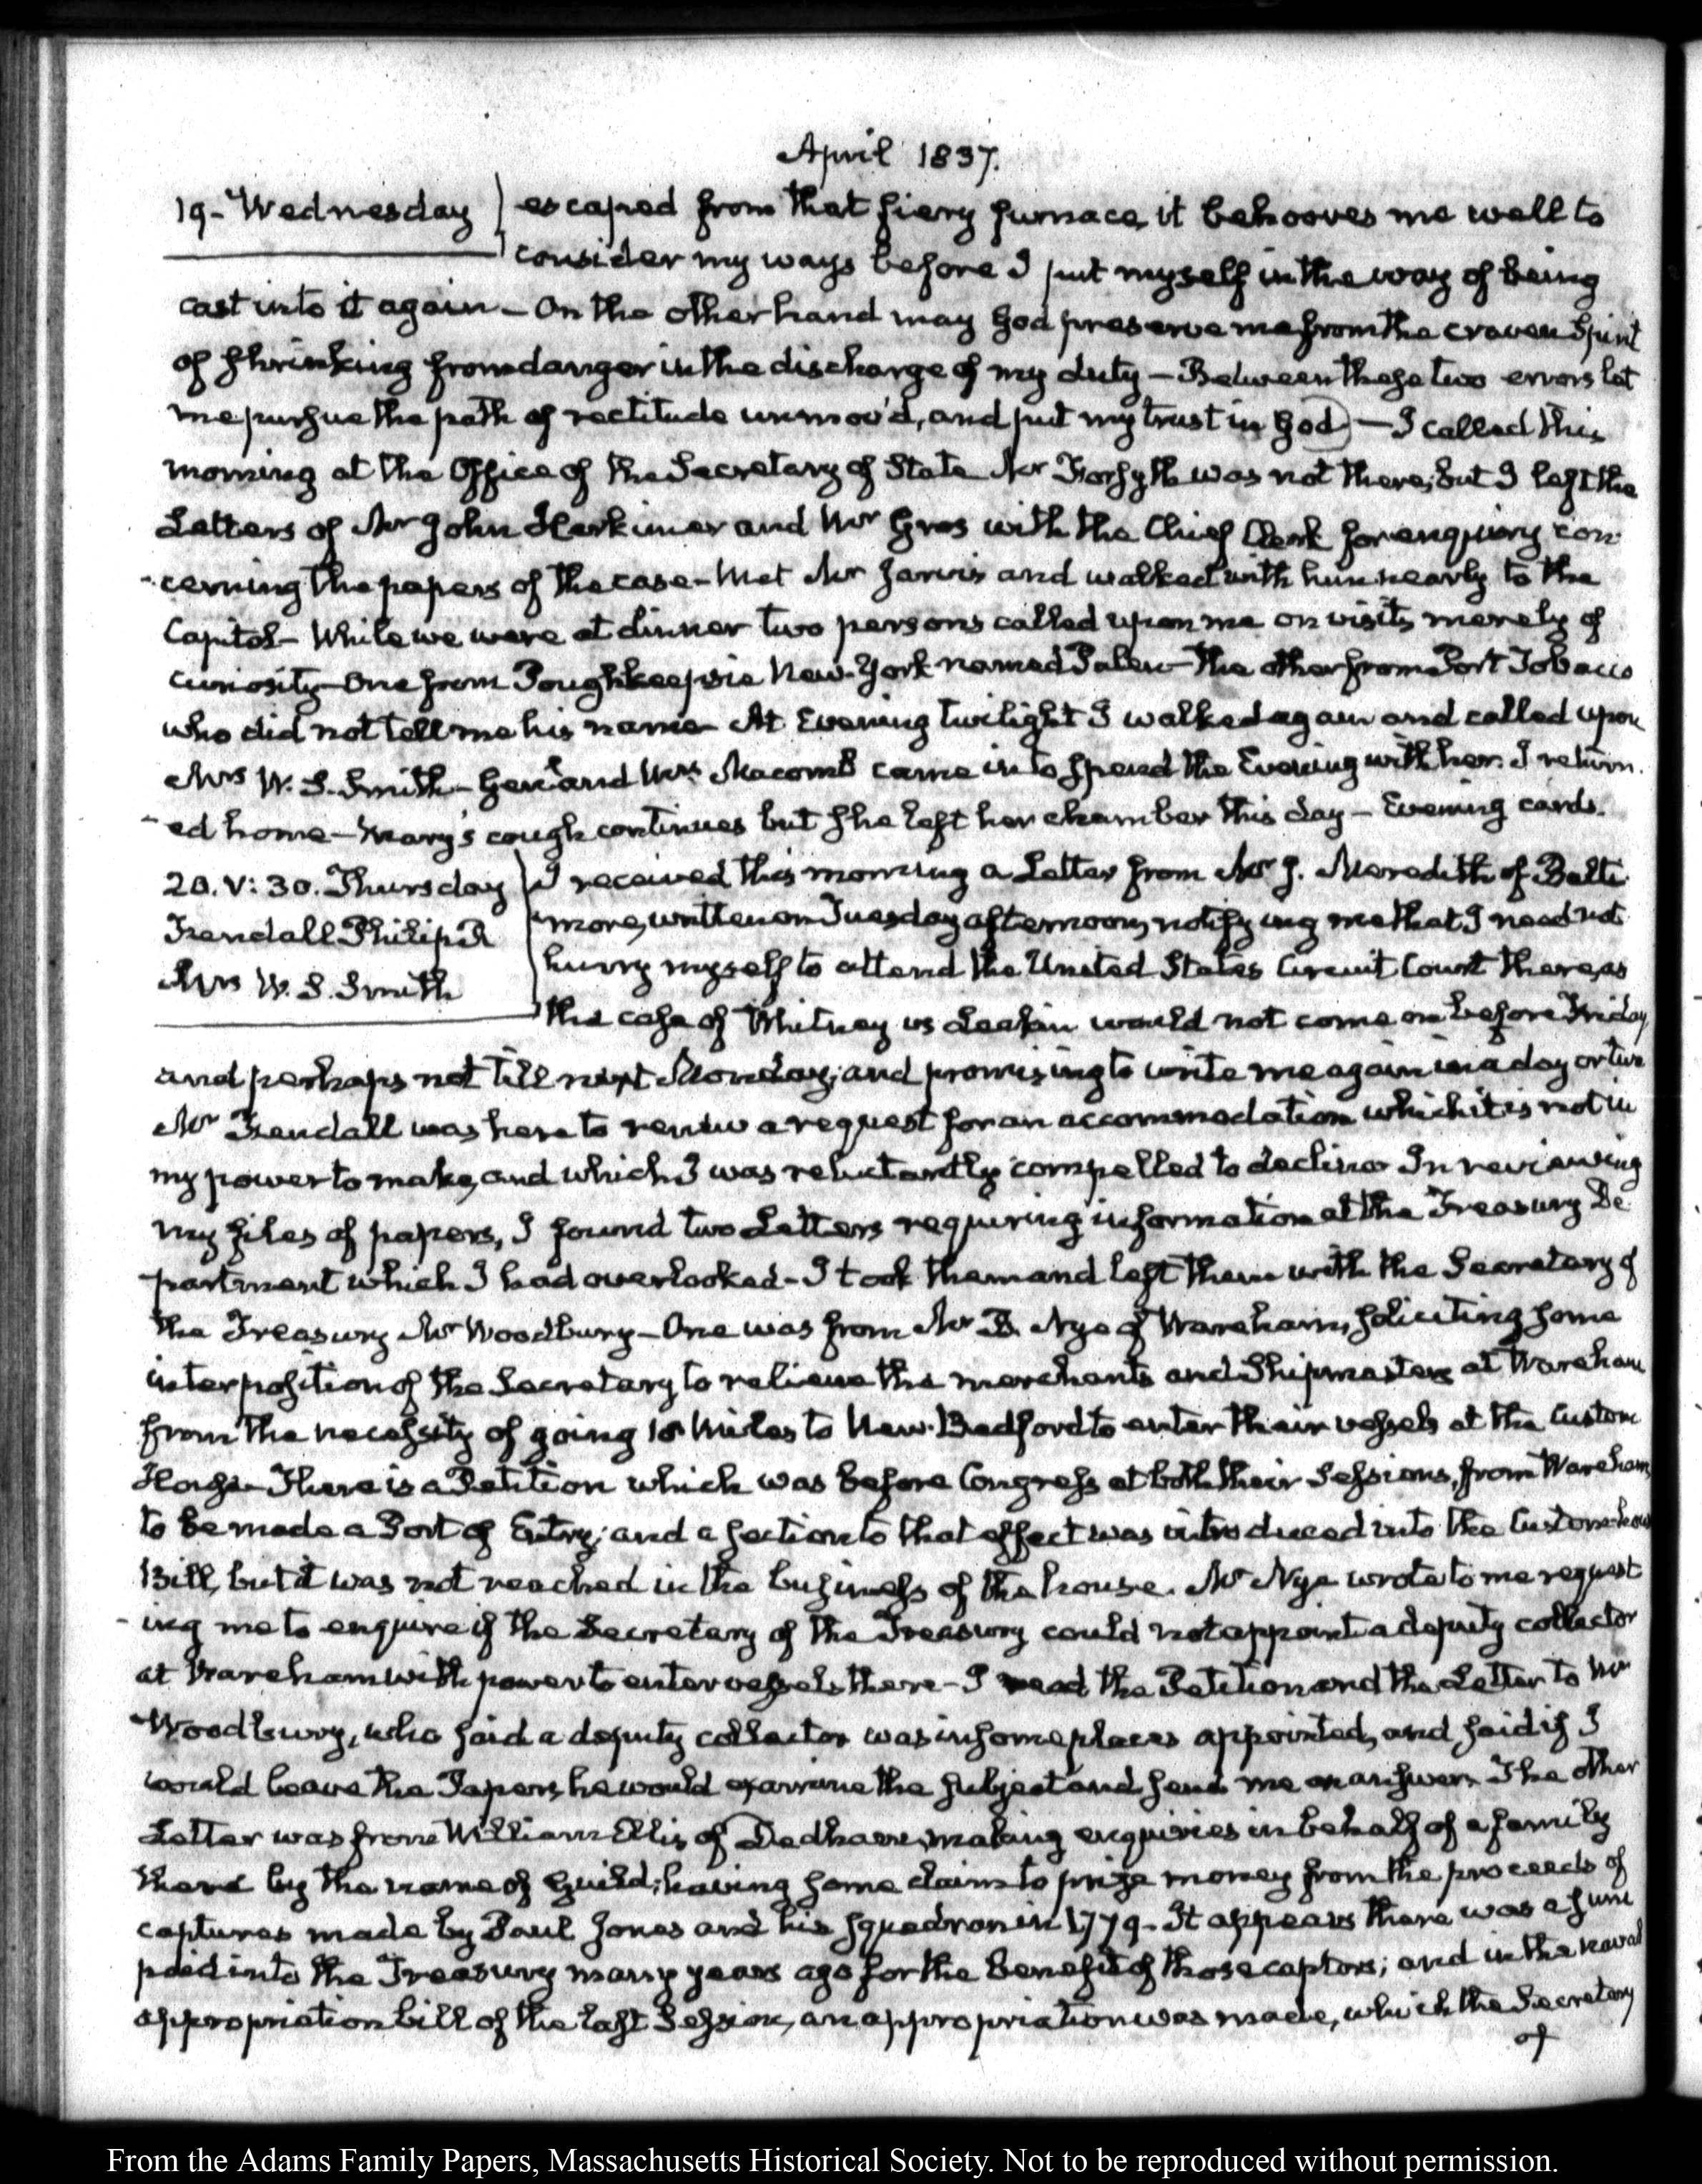 April 1837.
19- Wednesday
escaped from that fiery furnace, it behooves me well to
consider my ways before I put myself in the way of being
cast into it again – On the other hand may God preserve me from the craven Spirit
of shrinking from danger in the discharge of my duty – Between these two errors let
me pursue the path of rectitude unmov'd, and put my trust in God – I called this
morning at the Office of the Secretary of State Mr Forsyth was not there; but I left the
Letters of Mr John Herkimer and Mr Gros with the Chief Clerk for enquiry con
-cerning the papers of the case – Met Mr Jarvis and walked with him nearly to the
Capitol – While we were at dinner two persons called upon me on visits merely of
curiosity – One from Poughkeepsie New-York named Palen – The other from Port Tobacco
who did not tell me his name – At Evening twilight I walked again and called upon
Mrs W. S. Smith – Genl and Mrs Macomb came in to spend the Evening with her. I return.
-ed home – Mary's cough continues but she left her chamber this day – Evening cards.
20. V: 30. Thursday
Fendall Philip R
Mrs W. S. Smith
I received this morning a Letter from Mr J. Meredith of Balti
more, written on Tuesday afternoon, notifying me that I need not
hurry myself to attend the United States Circuit Court there, as
the case of Whitney vs Leakin would not come on before Friday
and perhaps not till next Monday; and promising to write me again in a day or two
Mr Fendall was here to renew a request for an accommodation which it is not in
my power to make, and which I was reluctantly compelled to decline. In reviewing
my files of papers, I found two Letters requiring information at the Treasury De
-partment which I had overlooked – I took them and left them with the Secretary of
the Treasury Mr Woodbury – One was from Mr B. Nye of Wareham, soliciting some
interposition of the Secretary to relieve the merchants and Shipmasters at Wareham
from the necessity of going 18 Miles to New-Bedford to enter their vessels at the Custom
House – There is a Petition which was before Congress at both their Sessions, from Wareham
to be made a Port of Entry; and a section to that effect was introduced into the Custom-hou
Bill, but it was not reached in the business of the house. Mr Nye wrote to me request
-ing me to enquire if the Secretary of the Treasury could not appoint a deputy collector
at Wareham with power to enter vessels there – I read the Petition and the Letter to Mr
Woodbury, who said a deputy collector was in some places appointed, and said if I
would leave the Papers he would examine the subject and send me an answer. The other
Letter was from William Ellis of Dedham, making enquiries in behalf of a family
there by the name of Guild; having some claim to prize money from the proceeds of
captures made by Paul Jones and his squadron in 1779 – It appears there was a sum
paid into the Treasury many years ago for the benefit of those captors; and in the naval
appropriation bill of the last Session, an appropriation was made, which the Secretary
of
From the Adams Family Papers, Massachusetts Historical Society. Not to be reproduced without permission.